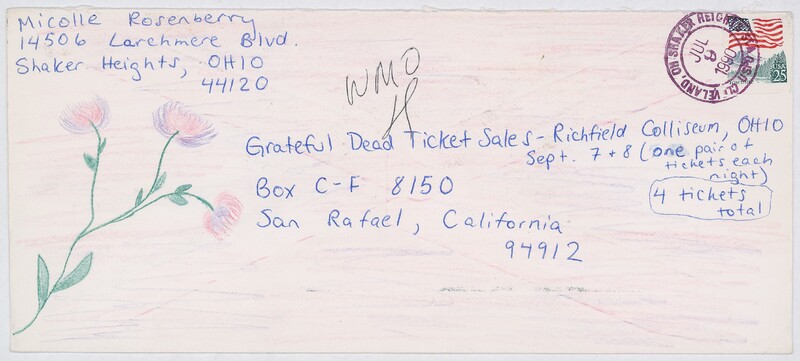 Micolle Rosenberry
14506 Larchmere Blvd.
Shaker Heights, OHIO
44120
WMO
4
SHAKER HEIGHTS STA
CLEVELAND OH
JUL
9
1990
USA
25
Grateful Dead Ticket Sales - Richfield Colliseum, OHIO
Sept. 7 + 8 (one pair of
tickets each
night)
4 tickets
total
Box C-F 8150
San Rafael, California
94912